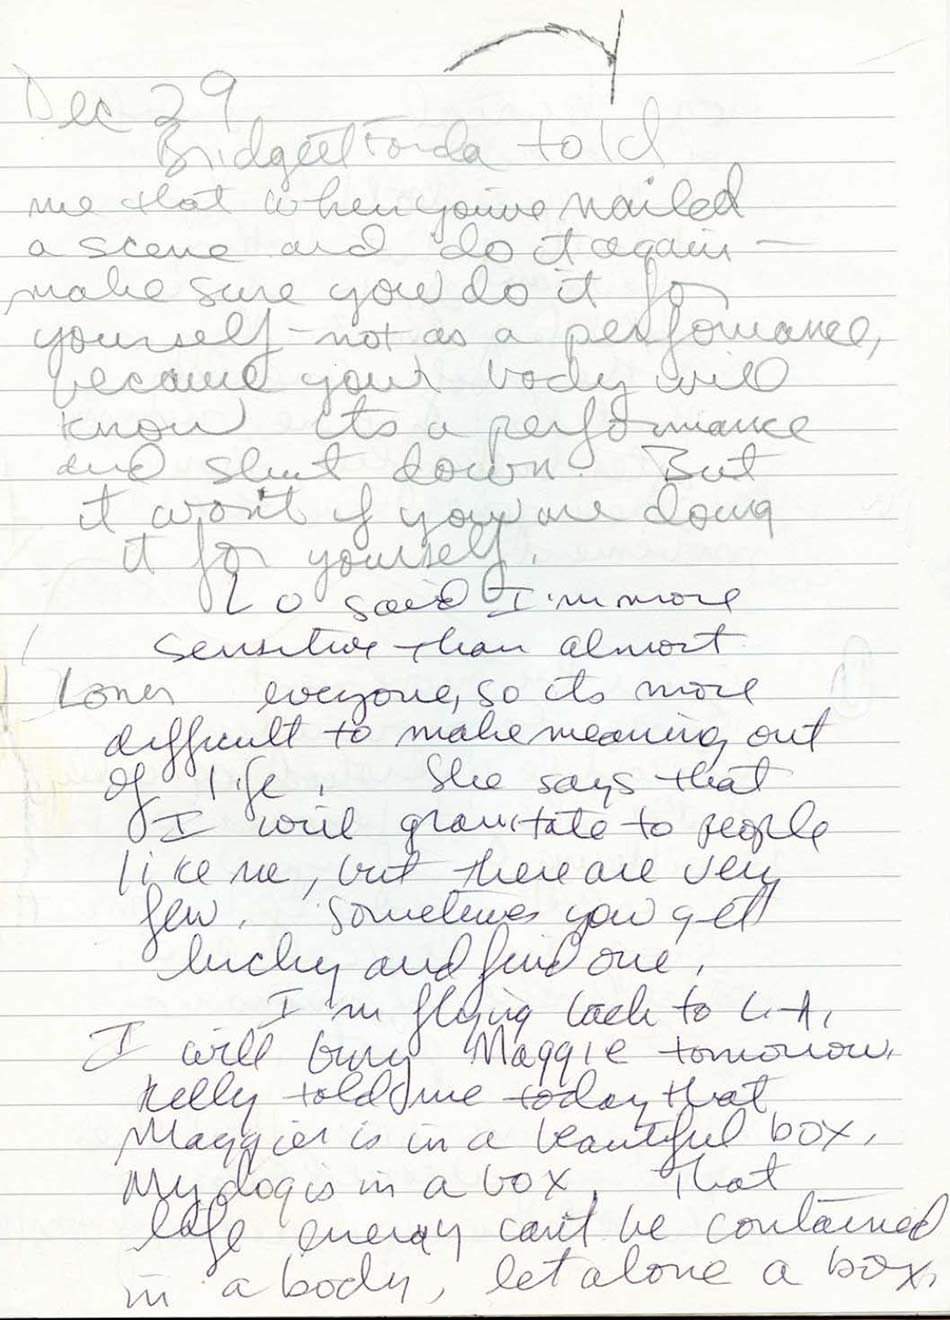 Dec 29
Bridgett Fonda told
me that when youve nailed
a scene and do it again —
make sure you do it for
yourself – not as a perfomance,
because your body will
know its a performance
and shut down. But
it won't if you are doing
it for yourself.
Lo said I'm more
sensitive than almost
Loner everyone, so its more
difficult to make meaning out
of life. She says that
I will gravitate to people
like me, but there are very
few. Sometimes you get
lucky and find one.
I'm flying back to L.A.
I will bury Maggie tomorrow.
Kelly told me today that
Maggie is in a beautiful box.
My dog is in a box. That
life energy can't be contained
in a body, let alone a box.